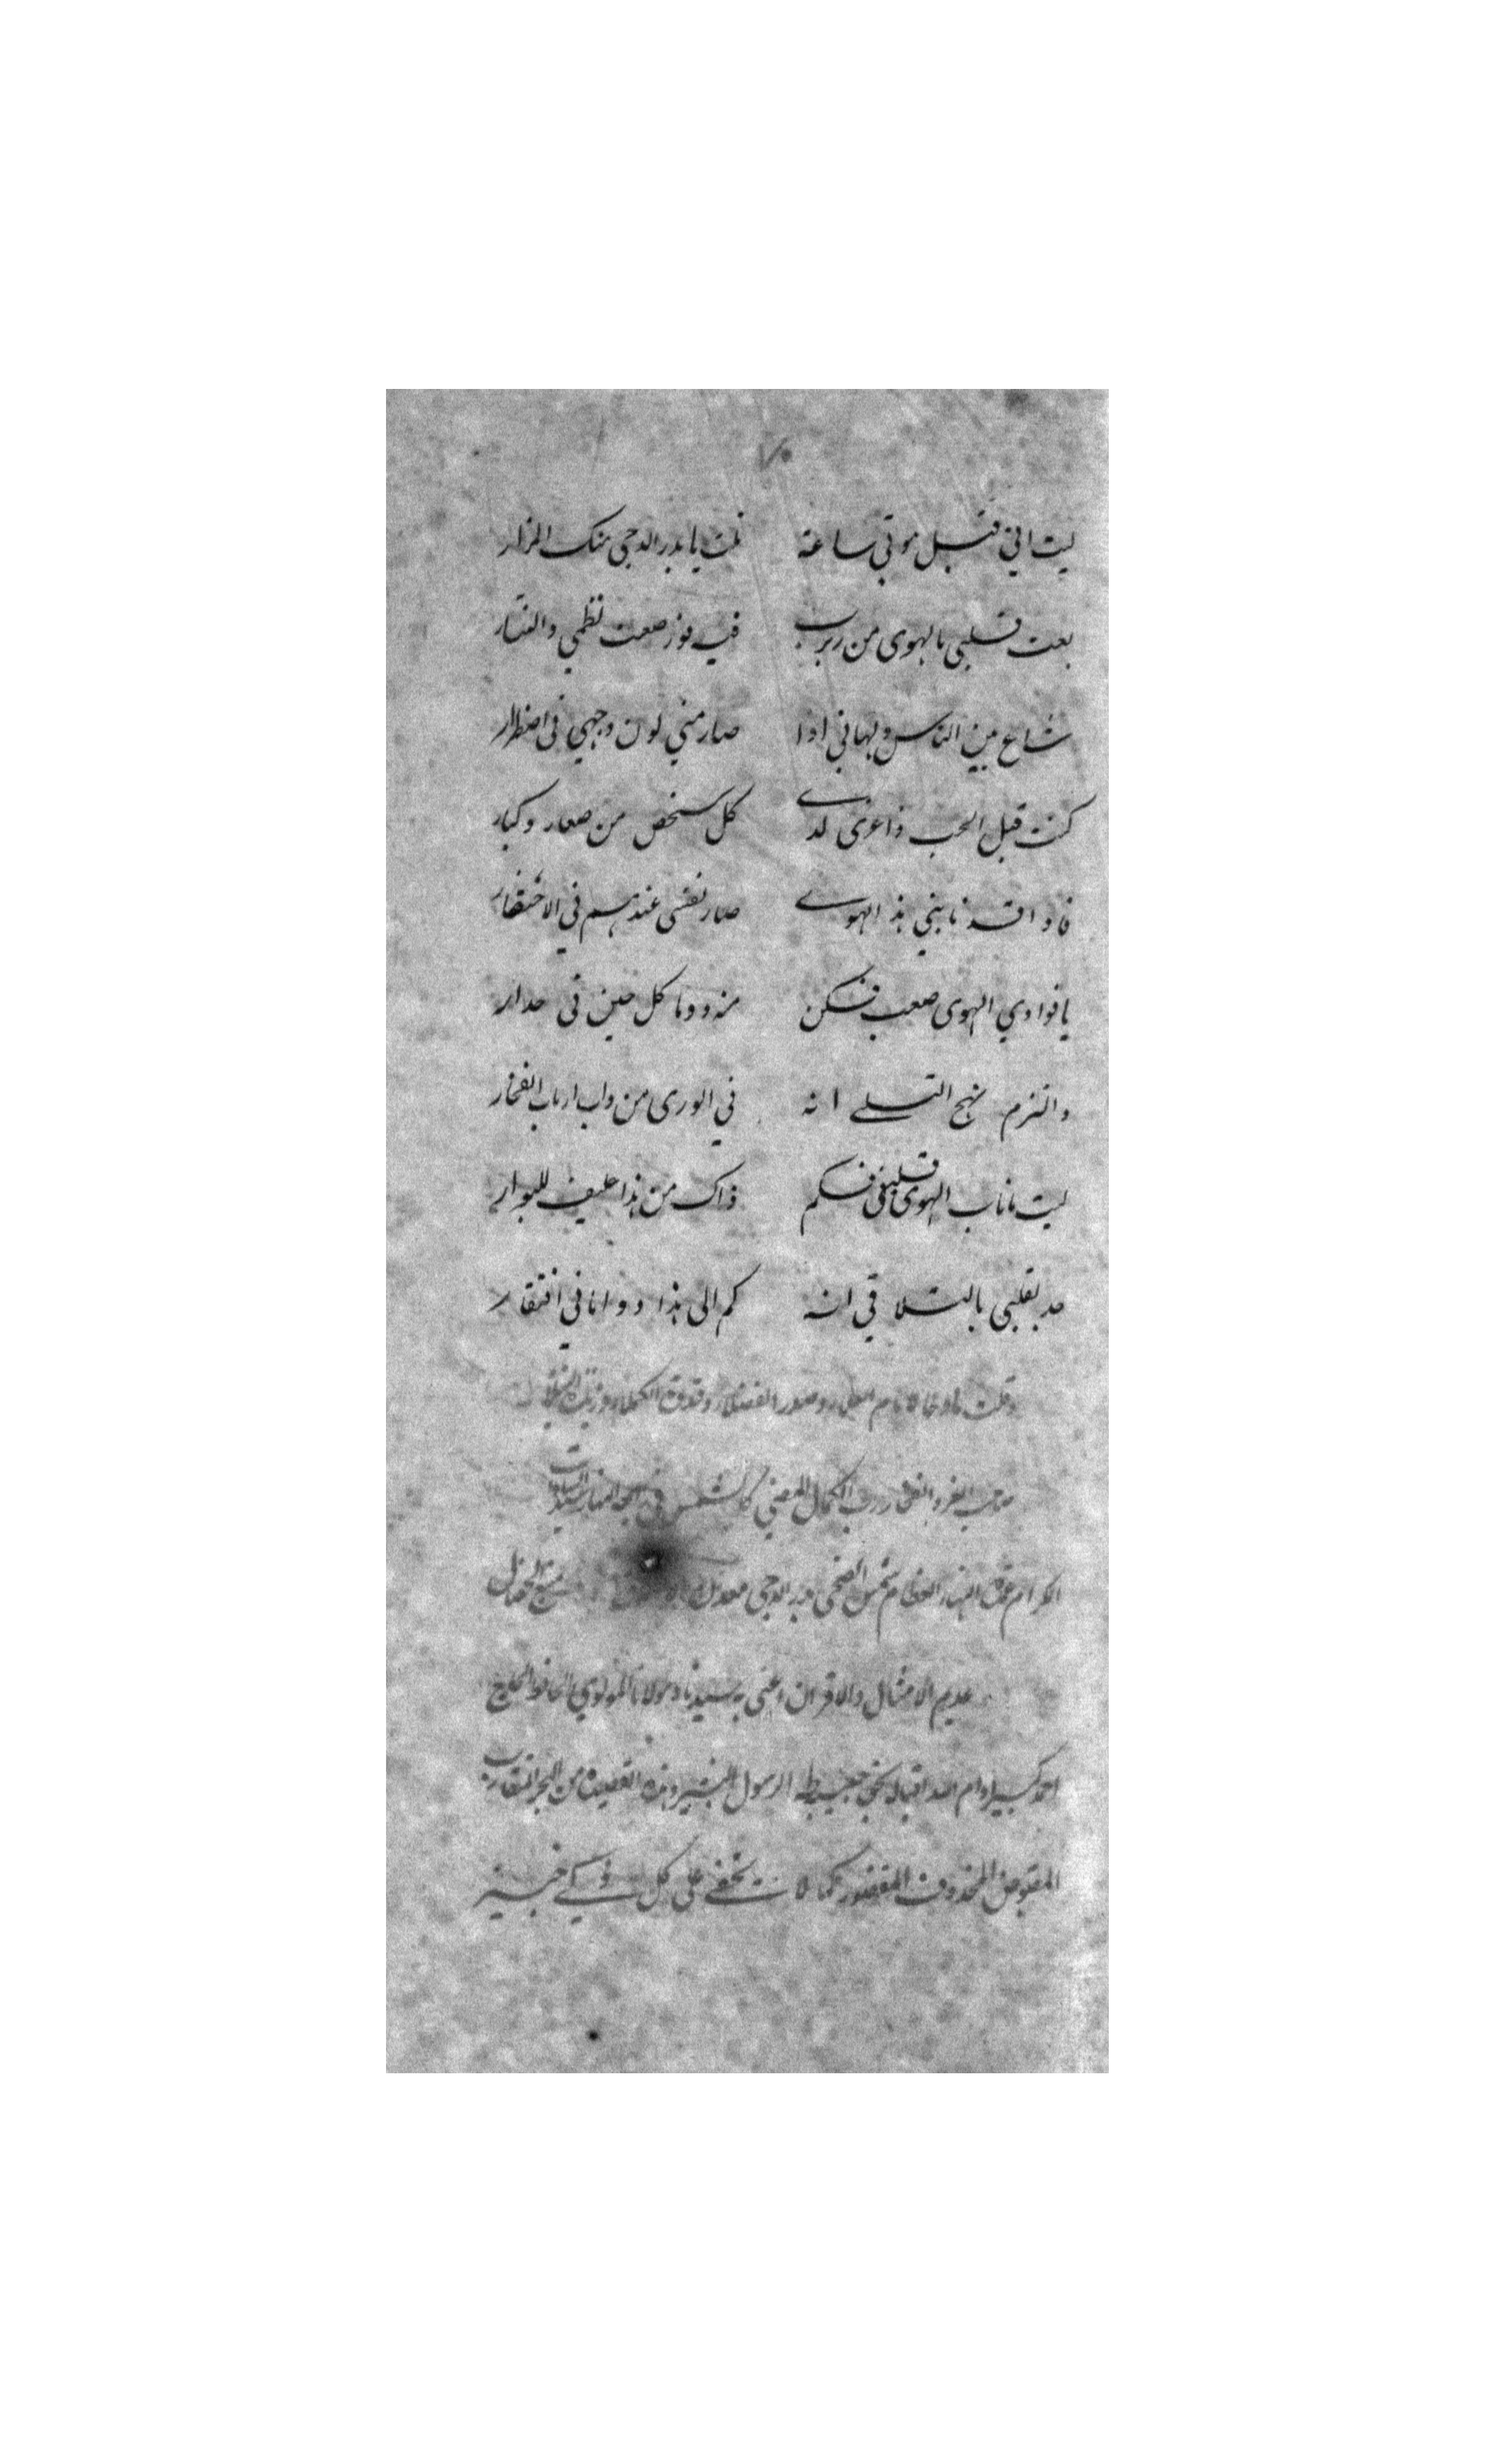 ٧٠
ليت اني قبل موتي ساعة نلت يا بدر الدجى منك المزار
بعت قلبي بالهوى من ربرب فيه فوز صعت نظمي والنثار
شاع بين الناس ولهاني اذا صار مني لون وجهي في اصفرار
كنت قبل الحب ذا عزى لدے كل شخص من صغار وكبار
فاذا قد نابني هذ الهوے صار نفسى عندهم في الاحتقار
يا فوادي الهوى صعب فكن منه دوما كل حين في حذار
والتزم نهج التسلے انه في الورى من داب ارباب الفخار
ليت ما ناب الهوى قلبي فكم ذاك من هذا حليف للبوار
جد بقلبي بالتلاقي انه كم الى هذا وذا انا في افتقار
وقلت مادحا لامام العلماء وصدر الفضلاء وقدوة الكملاء وزبدة
صاحب العز والفخار رب الكمال المضي كالشمس في النهار سيد السادات
الكرام عمدة العظام شمس الضحى بدر الدجى معدن منبع الخصائل
عديم الامثال والاقران اعني به سيدنا ومولانا المولوي الحافظ الحاج
احمد كبير ادام الله اقباله بحق حبيبه طه الرسول البشير وهذه القصيدة من البحر المتقارب
المقبوض المحذوف المقصور كما لا تخفے على كل ذكے خبير